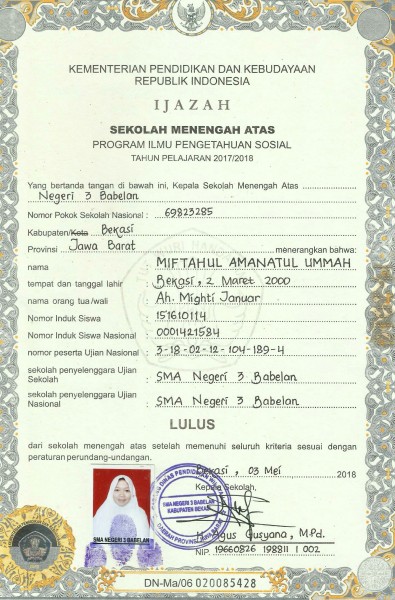 KEMENTERIAN PENDIDIKAN DAN KEBUDAYAAN
REPUBLIK INDONESIA
IJAZAH
SEKOLAH MENENGAH ATAS
PROGRAM ILMU PENGETAHUAN SOSIAL
TAHUN PELAJARAN 2017/2018
Yang bertanda tangan di bawah ini, Kepala Sekolah Menengah Atas
Negeri 3 Babelan
Nomor Pokok Sekolah Nasional : 69823285
Kabupaten/Kota Bekasi
Provinsi Jawa Barat menerangkan bahwa:
nama : MIFTAHUL AMANATUL UMMAH
tempat dan tanggal lahir : Bekasi, 2 Maret 2000
nama orang tua/wali : Ah. Mighti Januar
Nomor Induk Siswa : 151610114
Nomor Induk Siswa Nasional : 0001421584
nomor peserta Ujian Nasional : 3-18-02-12-104-189-4
sekolah penyelenggara Ujian
Sekolah : SMA Negeri 3 Babelan
sekolah penyelenggara Ujian
Nasional : SMA Negeri 3 Babelan
LULUS
dari sekolah menengah atas setelah memenuhi seluruh kriteria sesuai dengan
peraturan perundang-undangan.
Bekasi, 03 Mei 2018
Kepala Sekolah,
SMA NEGERI 3 BABELAN
KABUPATEN BEKASI
SMA NEGERI 3 BABELAN
H. Agus Gusyana, M.Pd.
NIP. 19660826 198811 1 002
DN-Ma/06 020085428